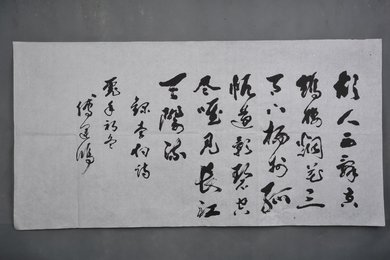 故人西辭黄
鶴樓烟花三
月下揚州孤
帆遠影碧空
尽唯見長江
天際流
錄李白詩